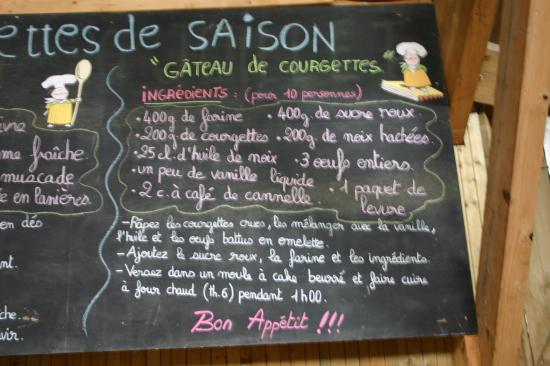 ettes de SAISON
"GÂTEAU de COURGETTES"
INGRÉDIENTS : (pour 10 personnes)
• 400g de farine • 400g de sucre roux
• 200g de courgettes • 200g de noix hachées.
• 25 cl d'huile de noix • 3 œufs entiers.
• un peu de vanille liquide
• 2 c. à café de cannelle. • 1 paquet de levure
me fraîche
muscade
e en lanières.
en dés
nt.
che.
vir.
– Râpez les courgettes crues, les mélanger avec la vanille,
l'huile et les œufs battus en omelette.
– Ajoutez le sucre roux, la farine et les ingrédients.
– Versez dans un moule à cake beurré et faire cuire
à four chaud (th.6) pendant 1h00.
Bon Appétit !!!